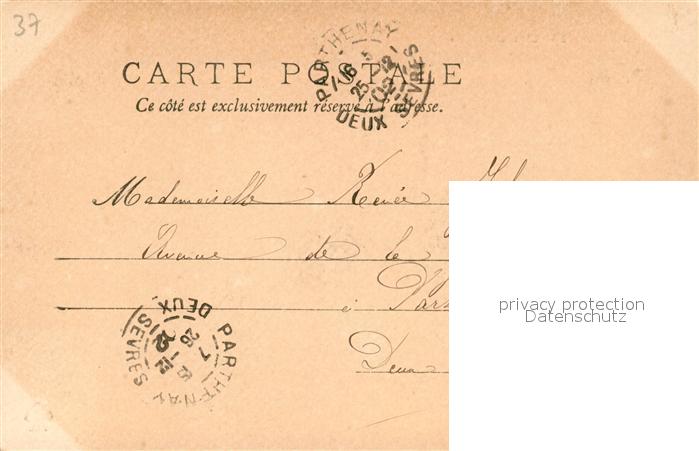 37
PARTHENAY
DEUX SEVRES
CARTE POSTALE
Ce côté est exclusivement réservé à l'adresse.
Mademoiselle Renée
Avenue de la
à Par
Deux
PARTHENAY
DEUX SEVRES
privacy protection
Datenschutz